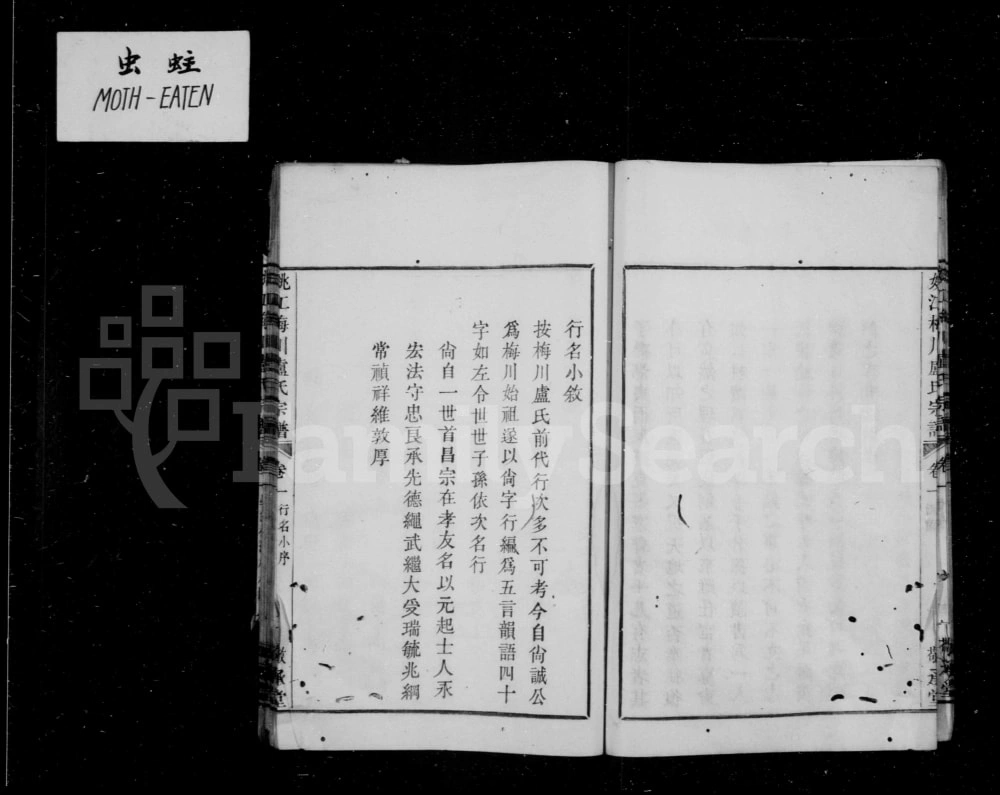 虫 蛀
MOTH - EATEN
姚江梅川盧氏宗譜 卷一
敬承堂
行名小敘
按梅川盧氏前代行次多不可考今自尙誠公
爲梅川始祖遂以尙字行編爲五言韻語四十
字如左令世世子孫依次名行
尙自一世首昌宗在孝友名以元起士人永
宏法守忠良承先德繩武繼大受瑞毓兆綱
常禎祥維敦厚
姚江梅川盧氏宗譜 卷一 行名小序
敬承堂
FamilySearch